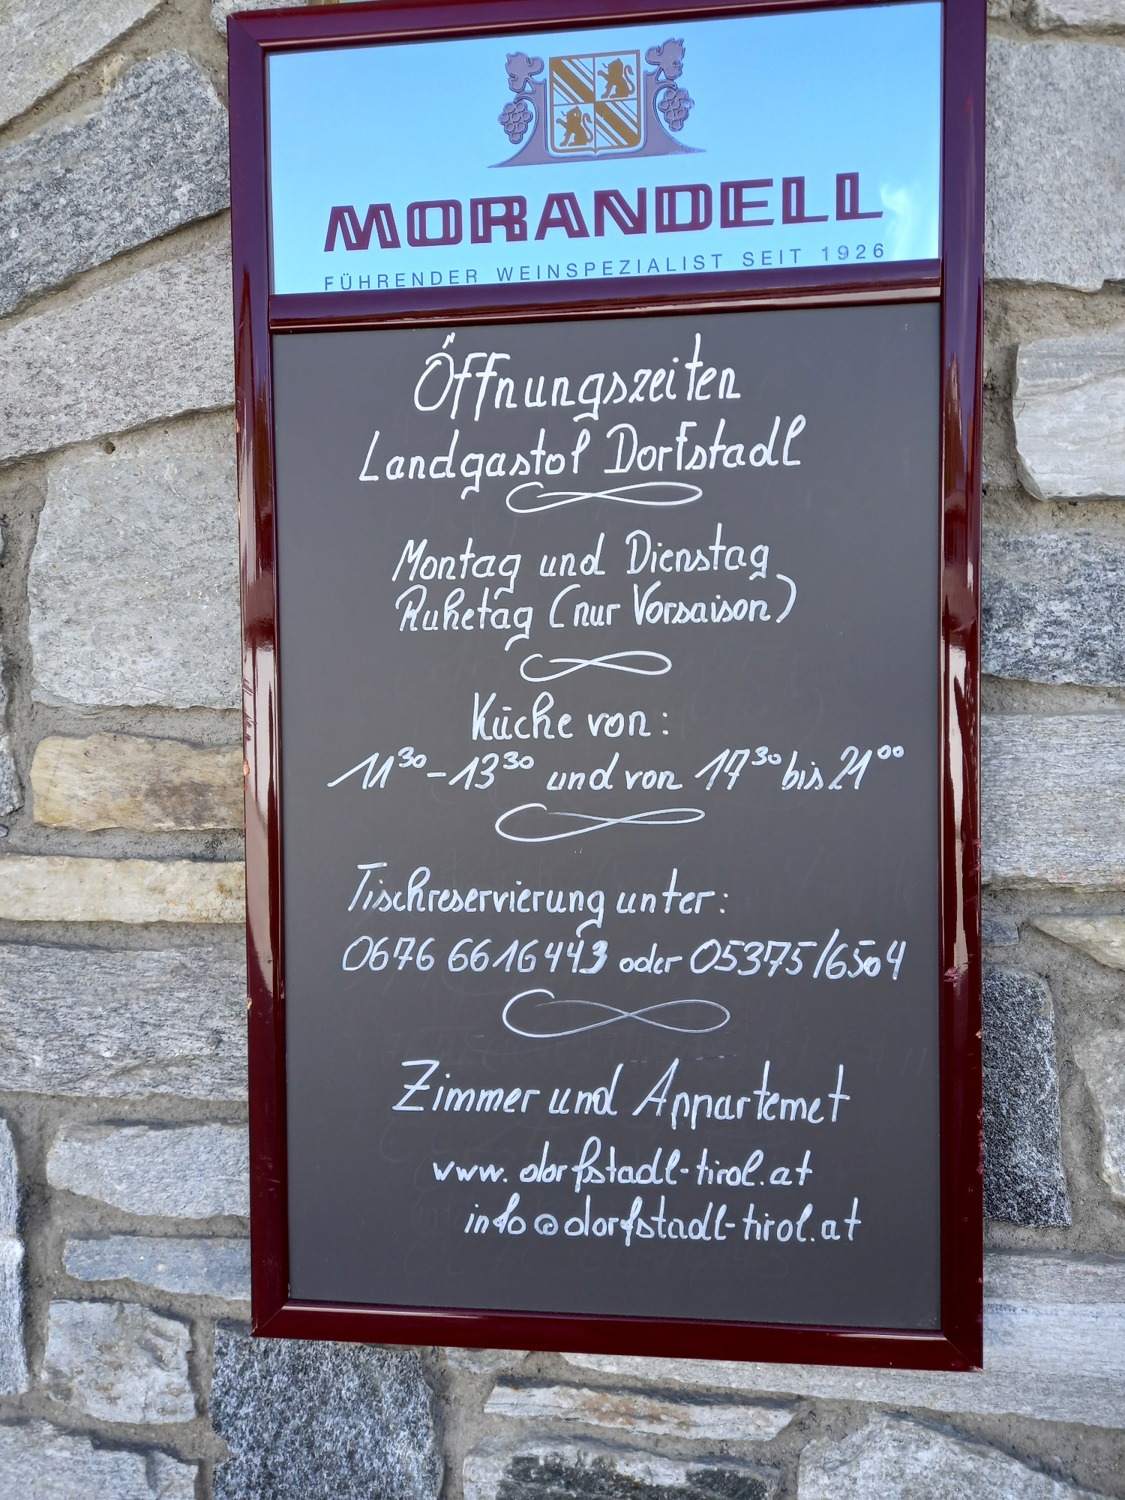 MORANDELL
FÜHRENDER WEINSPEZIALIST SEIT 1926
Öffnungszeiten
Landgastof Dorfstadl
Montag und Dienstag
Ruhetag (nur Vorsaison)
Küche von:
11³⁰-13³⁰ und von 17³⁰ bis 21⁰⁰
Tischreservierung unter:
0676 6616443 oder 05375/6504
Zimmer und Appartemet
www.dorfstadl-tirol.at
info@dorfstadl-tirol.at